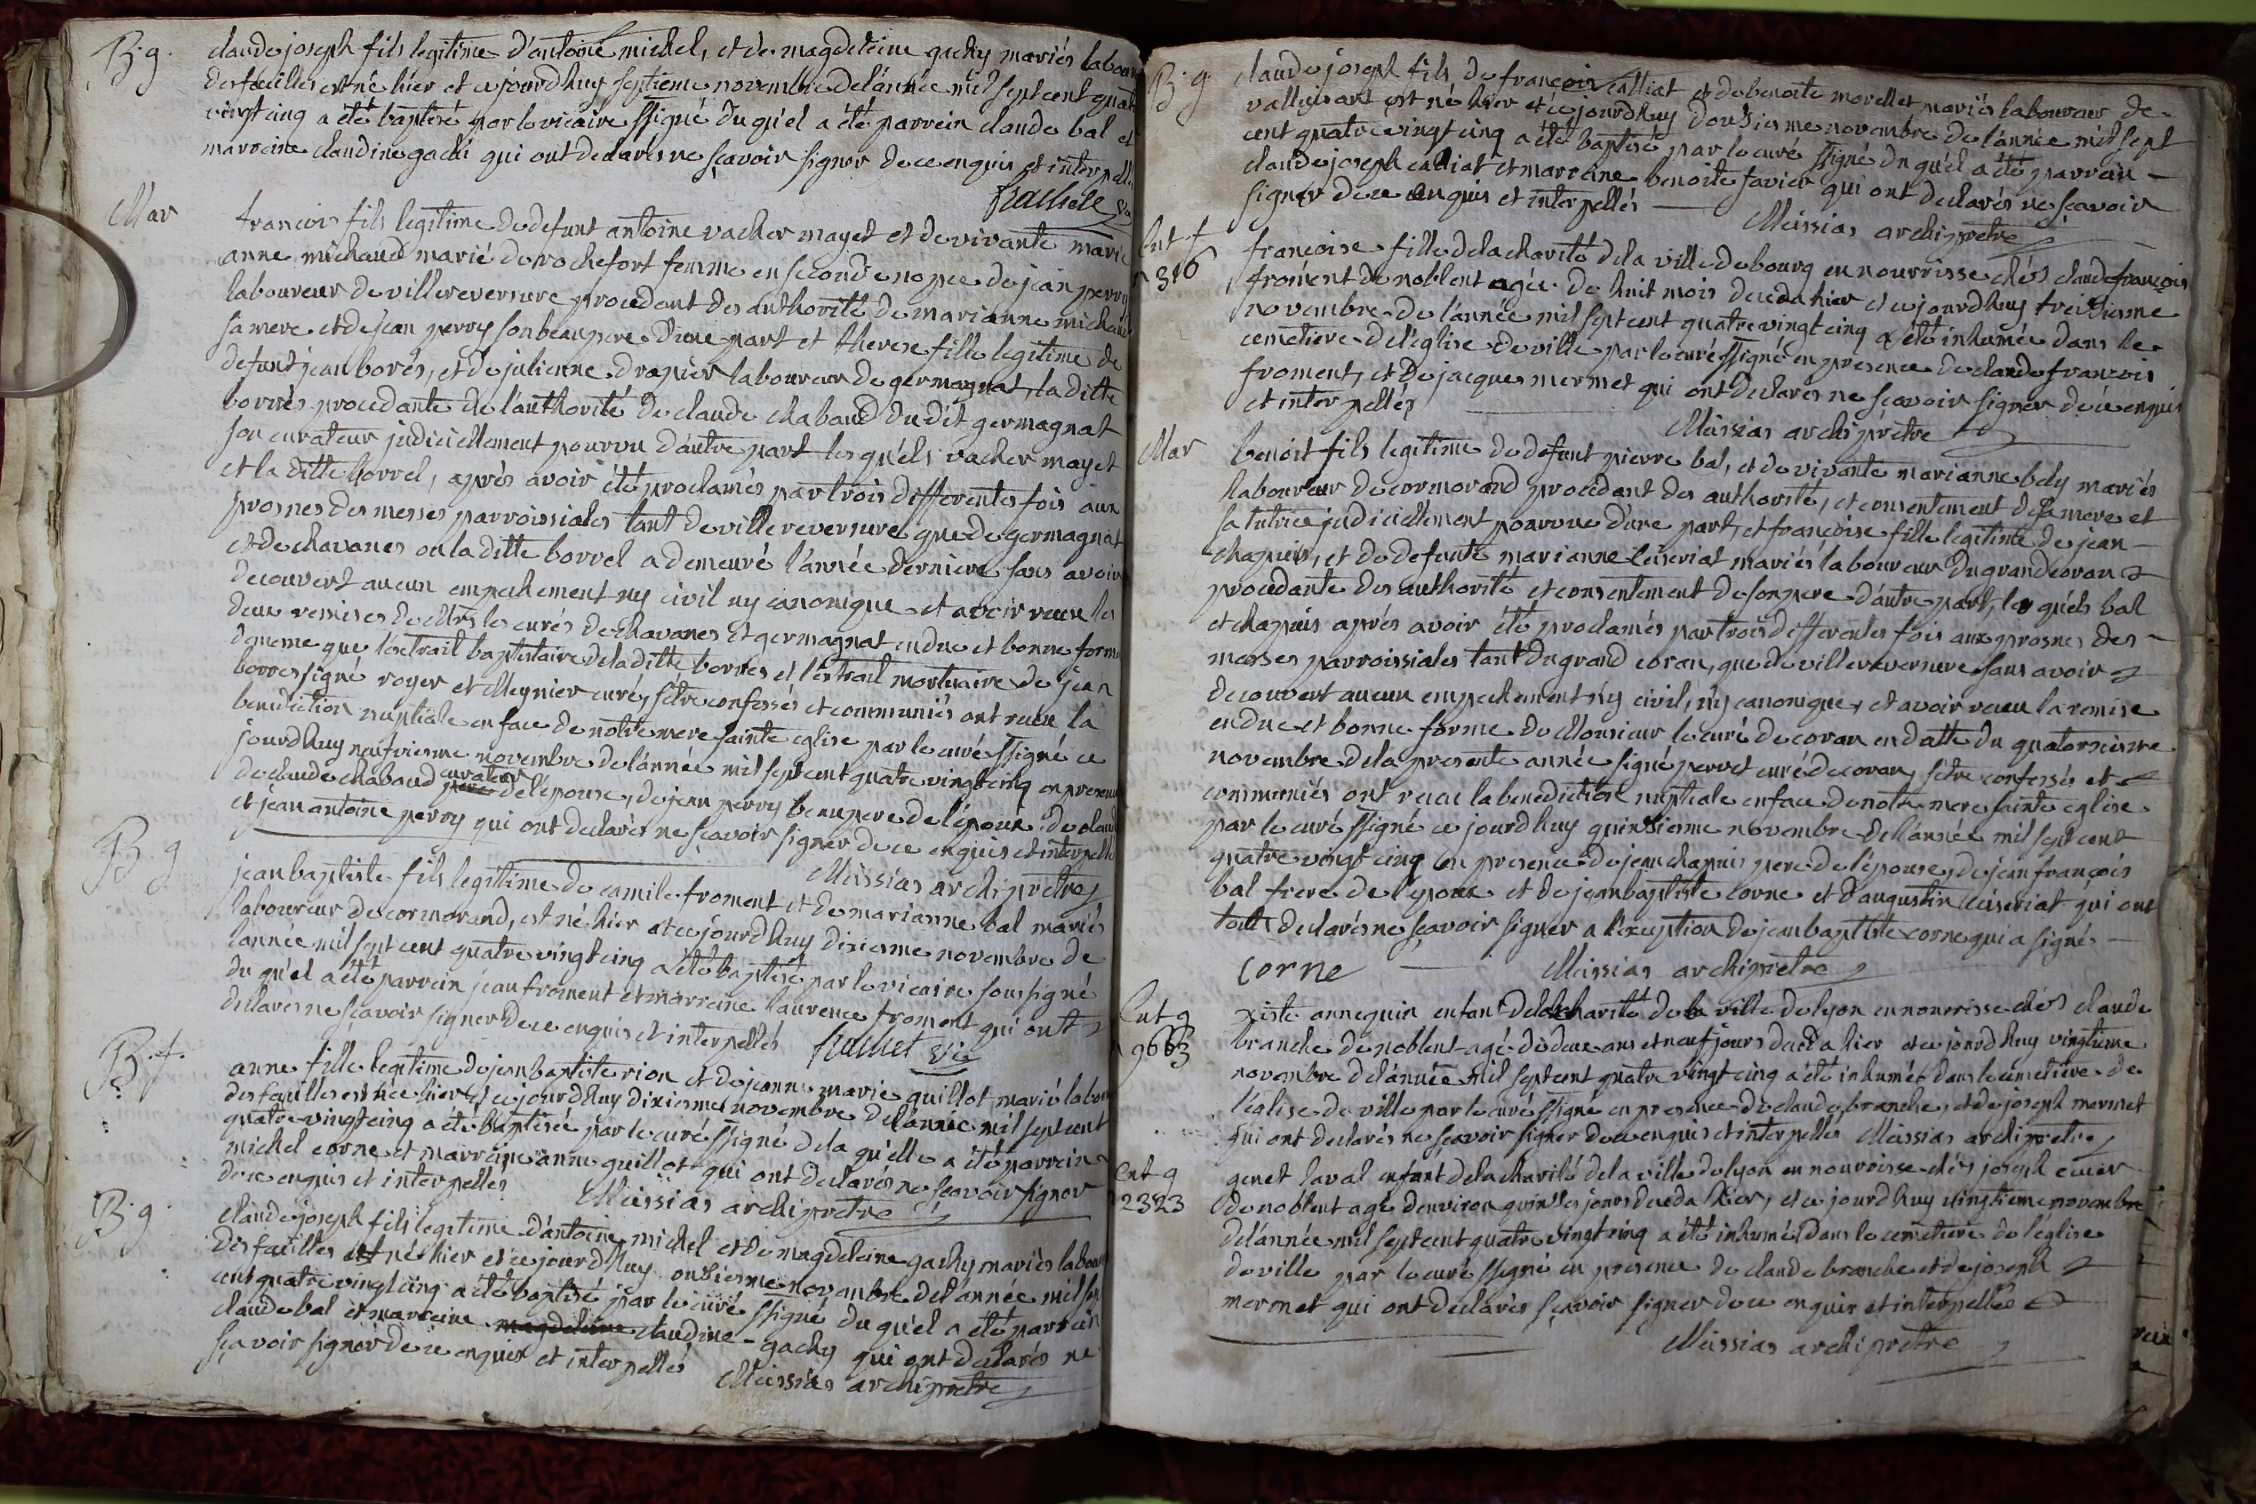 B. g.
claude joseph fils legitime d'antoine michel, et de magdeleine gachy mariés labour
des feuilles est né hier et ce jourd'huy septieme novembre de l'année mil sept cent quatre
vingt cinq a été baptisé par le vicaire ssigné du quel a été parrein claude bal et
marreine claudine gachi qui ont declarés ne sçavoir signer de ce enquis et interpellés
Mar
francois fils legitime de defunt antoine vacher mayet et de vivante marie
anne michaud marié de rochefort femme en seconde nopce de jean perry
laboureur de villereversure procedant des authorité de marianne michaud
sa mere et de jean perry son beaupere d'une part et therese fille legitime de
defunt jean borrés, et de julienne drapier laboureur de germagnat, la ditte
borrés procedante de l'authorité de claude chabaud du dit germagnat
son curateur judiciellement pourvu d'autre part les quéls vacher mayet
et la ditte borrel, aprés avoir été proclamés par trois differentes fois aux
prosnes des messes parroissiales tant de villereversure que de germagnat
et de chavanes ou la ditte borrel a demeuré l'année derniere sans avoir
decouvert aucun empechement ny civil ny canonique et avoir receu les
deux remises de Mrs les curés de chavanes et germagnat en due et bonne forme
de meme que l'extrait baptistaire de la ditte borres et l'extrait mortuaire de jean
borres signé royer et Meynier curés, s'etre confessés et communiés ont receu la
benediction nuptiale en face de notre mere sainte eglise par le curé ssigné ce
jourd'huy neufviesme novembre de l'année mil sept cent quatre vingt cinq en presence
de claude chabaud curateur de l'epouse, de jean perry beaupere de l'époux de claude
et jean antoine perry qui ont declarés ne sçavoir signer de ce enquis et interpellés
Missias archiprêtre
B. g
jean baptiste fils legitime de camile froment et de marianne bal mariés
laboureur de cormorand, est né hier et ce jourd'huy dixiesme novembre de
l'année mil sept cent quatre vingt cinq a été baptisé par le vicaire soussigné
du quel a été parrein jean froment et marreine laurence froment qui ont
declarés ne sçavoir signer de ce enquis et interpellés
B. f.
anne fille legitime de jean baptiste rion et de jeanne marie guillot marié labour
des feuilles est née hier et ce jourd'huy dixiesme novembre de l'année mil sept cent
quatre vingt cinq a été baptisée par le curé ssigné de la qu'elle a été parrein
michel corne et marreine anne guillot qui ont declarés ne sçavoir signer
de ce enquis et interpellés Missias archiprêtre
B. g.
claude joseph fils legitime d'antoine michel et de magdeleine gachy mariés labour
des feuilles est né hier et ce jourd'huy onsiesme novembre de l'année mil sep
cent quatre vingt cinq a été baptisé par le curé ssigné du quel a été parrein
claude bal et marreine magdeleine claudine gachy qui ont declarés ne
sçavoir signer de ce enquis et interpellés Missias archiprêtre
B. g.
claude joseph fils de francois calliat et de benoite morellet mariés laboureur de
est né hier et ce jourd'huy dousiesme novembre de l'année mil sept
cent quatre vingt cinq a été baptisé par le curé ssigné du quel a été parrein
claude joseph calliat et marreine benoite favier qui ont declarés ne sçavoir
signer de ce enquis et interpellés Missias archiprêtre
Ent f
316
françoise fille de la charité de la ville de bourg en nourrisse chés claude françois
froment de noblent agée de huit mois deceda hier et ce jourd'huy treisiesme
novembre de l'année mil sept cent quatre vingt cinq a été inhumée dans le
cemetiere de l'église de ville par le curé ssigné en presence de claude francois
froment, et de jacques mermet qui ont declarés ne sçavoir signer de ce enquis
et interpellés
Missias archiprêtre
Mar
benoit fils legitime de defunt pierre bal, et de vivante marianne bely mariés
laboureur de cormorand procedant des authorité, et consentement de sa mere et
sa tutrice judiciellement pourvue d'une part, et françoise fille legitime de jean
chapuis, et de defunte marianne ceiseriat mariés laboureur du grand coran
procedante des authorité et consentement de son pere d'autre part, les quéls bal
et chapuis aprés avoir été proclamés par trois differentes fois aux prosnes des
messes parroissiales tant du grand coran, que de villereversure sans avoir
decouvert aucun empechement ny civil, ny canonique, et avoir receu la remise
en due et bonne forme de Monsieur le curé de coran en datte du quatorsiesme
novembre de la presente année signé perret curé de coran, s'etre confessés et
communiés ont receu la benediction nuptiale en face de notre mere sainte eglise
par le curé ssigné ce jourd'huy quinsiesme novembre de l'année mil sept cent
quatre vingt cinq en presence de jean chapuis pere de l'épouse, de jean françois
bal frere de l'epoux et de jean baptiste corne et d'augustin ceiseriat qui ont
touts declarés ne sçavoir signer a l'exception de jean baptiste corne qui a signé
corne Missias archiprêtre
Ent g
9663
xiste annequin enfant de la charité de la ville de lyon en nourrisse chés claude
branche de noblent agé de deux ans et neuf jours deceda hier et ce jourd'huy vingtieme
novembre de l'année mil sept cent quatre vingt cinq a été inhumé dans le cimetiere de
l'église de ville par le curé ssigné en presence de claude branche, et de joseph mermet
qui ont declarés ne sçavoir signer de ce enquis et interpellés Missias archiprêtre
Ent g
2323
genet laval enfant de la charité de la ville de lyon en nourrisse chés joseph
de noblent agé d'environ quinse jours deceda hier, et ce jourd'huy vingtieme novembre
de l'année mil sept cent quatre vingt cinq a été inhumé dans le cemetiere de l'église
de ville par le curé ssigné en presence de claude branche et de joseph
mermet qui ont declarés sçavoir signer de ce enquis et interpellés
Missias archiprêtre